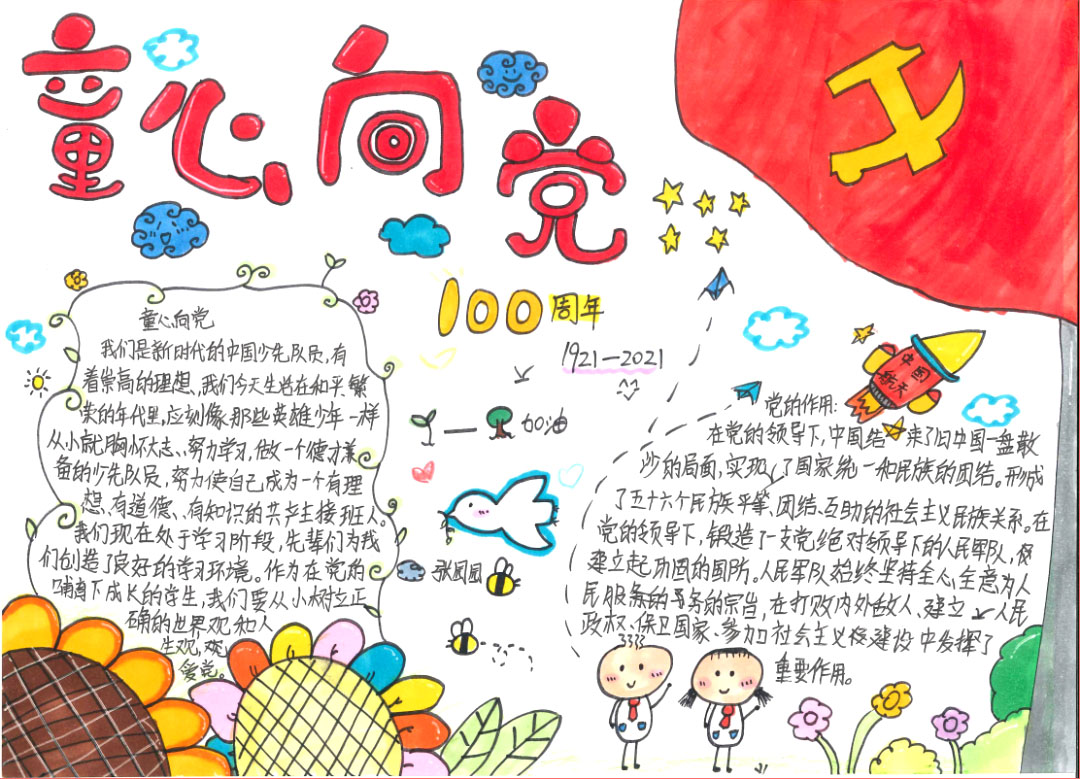 童心向党
100周年
1921—2021
加油
张园园
中国
航天
童心向党
我们是新时代的中国少先队员，有
着崇高的理想、我们今天生活在和平、繁
荣的年代里，应刻像那些英雄少年一样
从小就胸怀大志、努力学习，做一个德才兼
备的少先队员，努力使自己成为一个有理
想、有道德、有知识的共产主接班人。
我们现在处于学习阶段，先辈们为我
们创造了良好的学习环境。作为在党的
哺育下成长的学生，我们要从小树立正
确的世界观和人
生观，
爱党。
党的作用：
在党的领导下，中国结来了旧中国一盘散
沙的局面，实现了国家统一和民族的团结。形成
了五十六个民族平等、团结、互助的社会主义民族关系。在
党的领导下，锻造了一支党绝对领导下的人民军队，
建立起巩固的国防。人民军队始终坚持全心全意为人
民服务的宗旨，在打败内外敌人、建立人民
政权、保卫国家、参加社会主义建设中发挥了
重要作用。